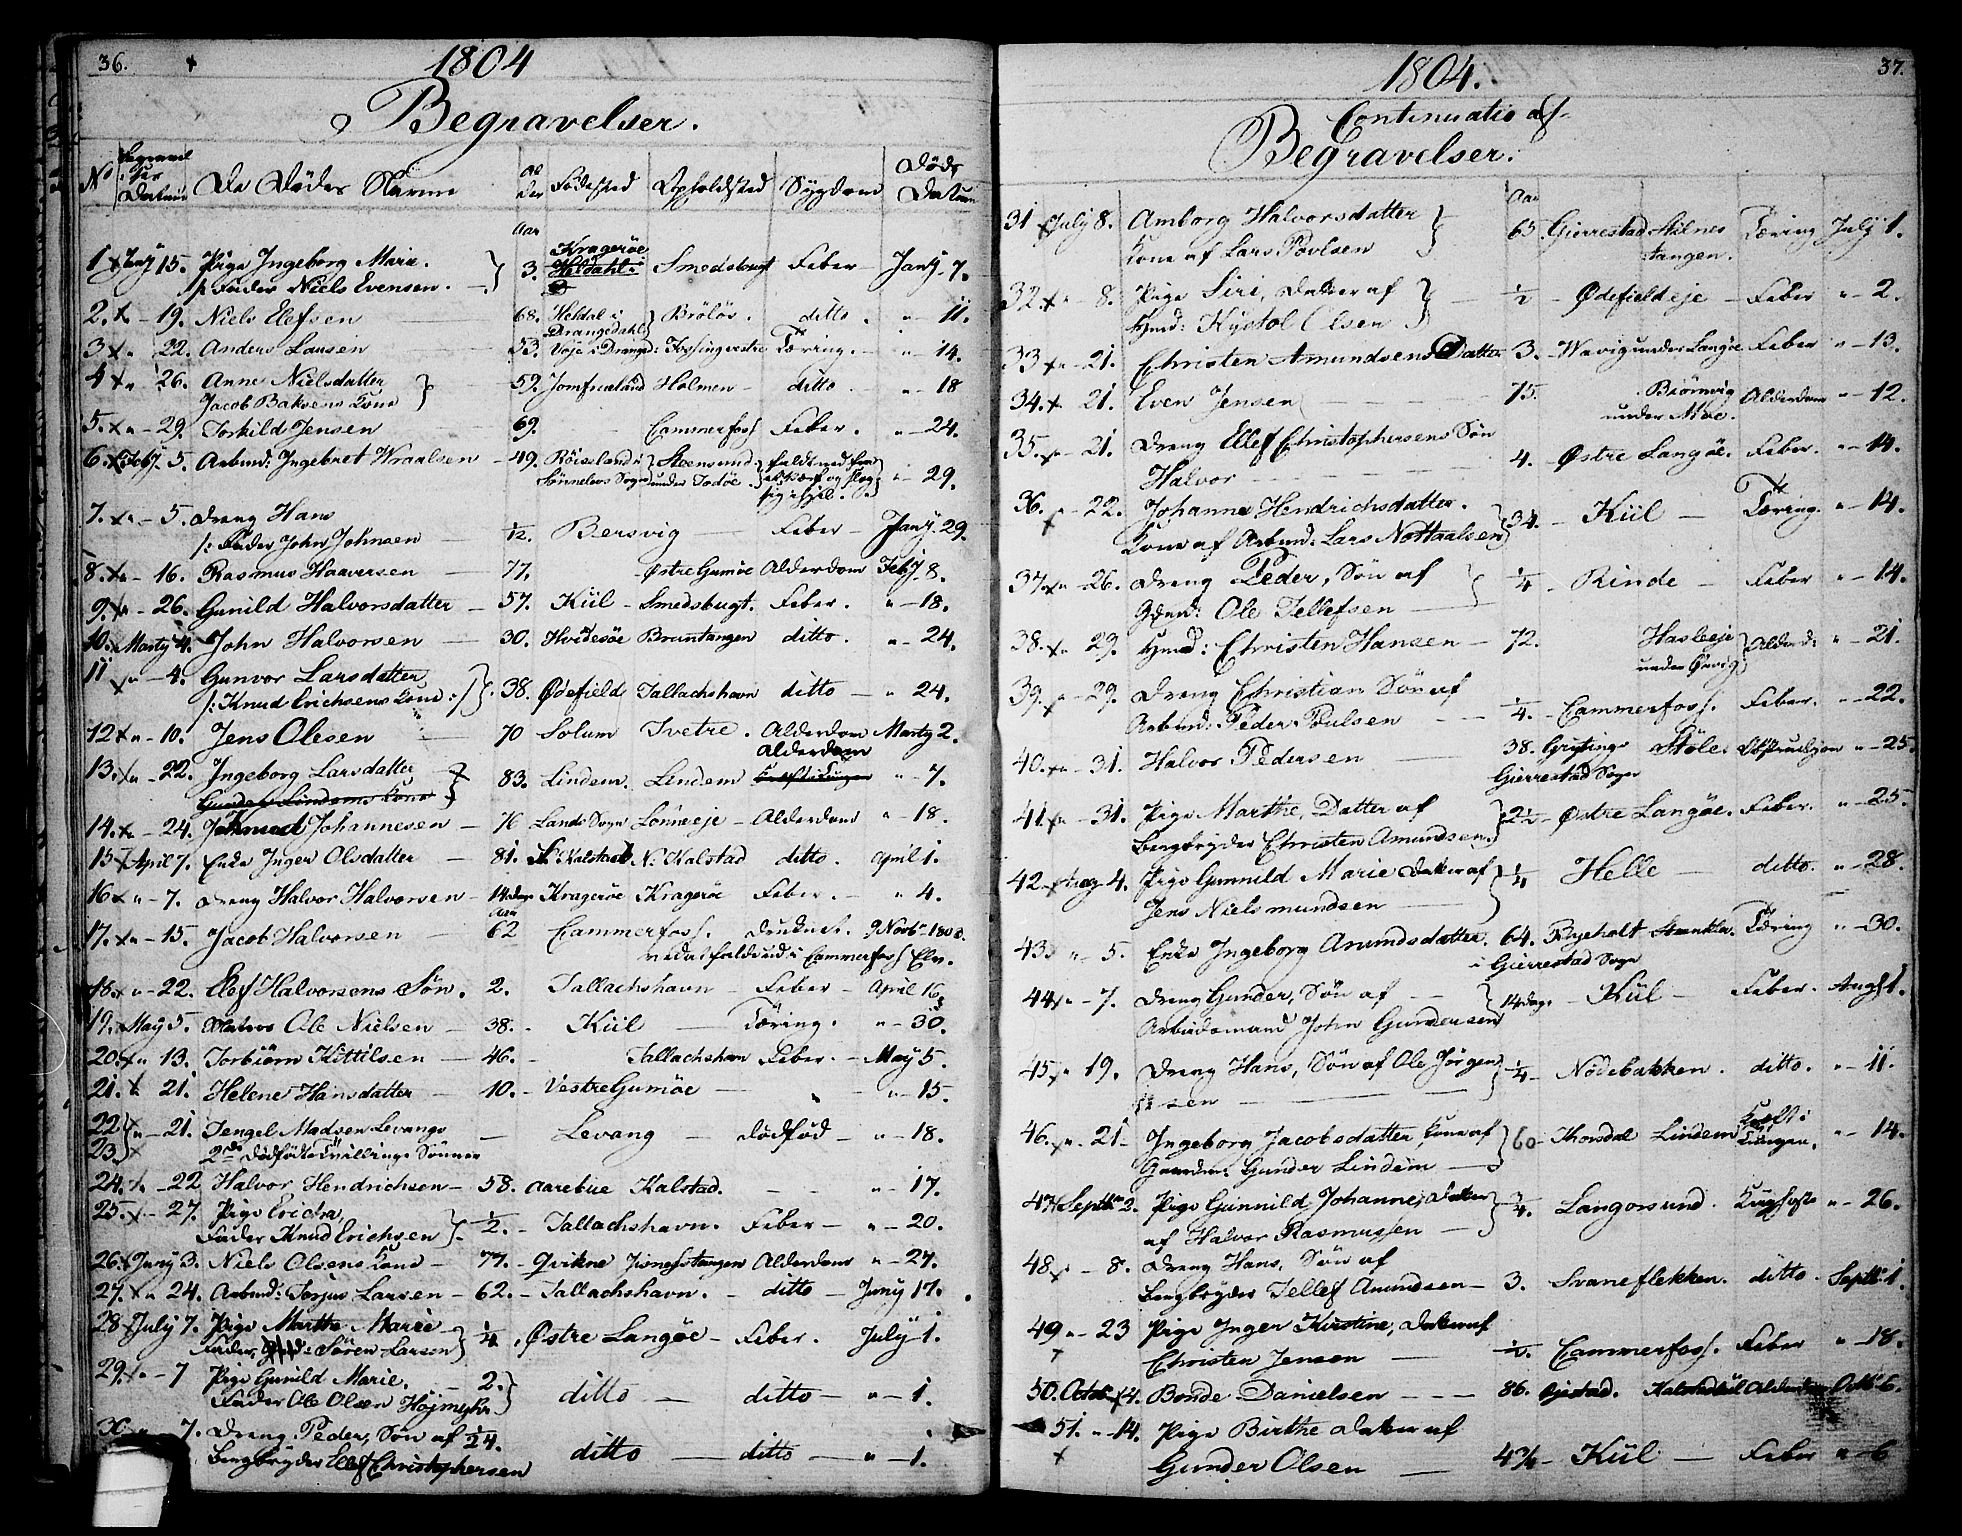 36.
1804
Begravelser.
No Begravelser Datum De Dödes Navne Alder Födested Opholdsted Sygdom Döds Datum
Aar
1 Jany 15. Pige Ingeborg Marie. 3. Kragerøe Smedsbugt Feber Jany 7.
/: Fader Niels Evensen. Heldahl:
2. " 19. Niels Elefsen 68. Heldal i Drangedahl Bröløs. ditto. " 11.
3 " 22. Anders Larsen 53. Voje i Dranged: Fossing vestre Tæring. " 14.
4 " 26. Anne Nielsdatter 59. Jomfrueland Holmen ditto. " 18
Jacob Baksens Kone
5. " 29. Torkild Jensen 69. Cammerfoss Feber. " 24.
6. Feby 5. Arbmd: Ingebret Wraalsen 49. Röisland i Stensund faldt ned fra
Sønneløvs Sogn under Todöe. og slog sig ihjel. " 29.
7. " 5. Dreng Hans
/: Fader John Johnsen 1/12. Bersvig Feber Jany. 29.
8. " 16. Rasmus Haaversen 77. Østre Gumöe Alderdom Feby. 8.
9. " 26. Gunild Halvorsdatter 57. Kiil Smedsbugt. Feber. " 18.
10. Marty 4. John Halvorsen 30. Hvidesöe Bruntangen ditto. " 24.
11 " 4. Gunvor Larsdatter
/: Knud Erichsens Kone :/ 38. Ødefield Tallachshavn ditto " 24.
12 " 10. Jens Olesen 70 Solum Tvetre. Alderdom Marty 2.
13. " 22. Ingeborg Larsdatter 83. Lindem. Lendem Alderdom " 7.
Gunder Lindems Kone
14. " 24. Johannesen 76 Lands Sogn Lönneeje Alderdom " 18.
15 April 7. Enke Inger Olsdatter 81. Kalstad N: Kalstad ditto. April 1.
16 " 7. Dreng Halvor Halvorsen 14 dage Kragerøe Kragerøe Feber. " 4.
17. " 15. Jacob Halvorsen Aar 62 Cammerfoss. Druknet. 9 Novbr. 1803.
ved at falde ud i Cammerfoss Elv.
18. " 22. Elef Halvorsens Søn. 2. Tallachshavn Feber April 16.
19. May 5. Ole Nielsen 38. Kiil Tæring. " 30.
20. " 13. Torbiörn Kittilsen 46. Tallachshavn Feber. May 5.
21. " 21. Helene Hansdatter 10. Vestre Gumöe " 15.
22. " 21. Tengel Madsen Levangs Levang Dödföd " 18.
23. 2de Dödfödte Tvillinge Sönner
24. " 22 Halvor Hendrichsen 58. Aarebue Kalstad. " 17.
25. " 27. Pige Ericha,
Fader Knud Erichsen 1/2. Tallachshavn. Feber " 20.
26. Juny 3. Niels Olsens Kone 77. Qvikne Alderdom " 27.
27. " 24. Arbmd: Torjus Larsen 62. Tallachshavn. ditto Juny 17.
28 July 7. Pige Marthe Marie
Fader, Sören Larsen 1/4. Østre Langöe Feber. July 1.
29. " 7 Pige Gunild Marie. 2.
Fader Ole Olsen Højmyhr ditto ditto " 1.
30 " 7. Dreng Peder, Søn af 1/24.
Bergbryder Elef Christophersen ditto ditto " 1.
37.
1804.
Continuatio af
Begravelser.
Aar
31 July 8. Amborg Halvorsdatter 65. Gierrestad Stilnes Tæring July 1.
Kone af Lars Povlsen tangen.
32. " 8. Pige Siri, Datter af 1/2 Ødefield eje Feber " 2.
Hmd: Kystol Olsen
33 " 21. Christen Amundsens Datter 3. Wavig under Langöe Feber " 13.
34. " 21. Even Jensen 75. Biörnvig Alderdom " 12.
35. " 21. Dreng Ellef Christophersens Søn
Halvor 4. Østre Langöe. Feber. " 14.
36. " 22. Johanne Hendrichsdatter. 34. Kiil Tæring. " 14.
Kone af Arbmd: Lars Nottaalsen
37. " 26. Dreng Peder, Søn af 1/4 Rinde Feber " 14.
Gdmd: Ole Tellefsen
38. " 29. Hmd: Christen Hansen 72. Hasleeje Alderd: " 21.
under Øevig
39. " 29. Dreng Christian Søn af
Arbmd: Peder Poulsen 1/4. Cammerfoss. Feber. " 22.
40. " 31. Halvor Pedersen 38. Grytinge Støle: Obstruction " 25.
Gierrestad Sogn
41. " 31. Pige Marthe, Datter af 2 1/2 Østre Langöe. Feber. " 25.
Bergbryder Christen Amundsen
42 Aug 4. Pige Gunnild Marie Datter af 1/4 Helle ditto. " 28.
Jens Nielsmundsen
43. " 5. Enke Ingeborg Amundsdatter. 64. Rygeholt Tæring " 30.
i Gierrestad Sogn
44. " 7. Dreng Gunder, Søn af 14 dage Kiil Feber. Augst 1.
Arbeidsmand John Gundersen
45 " 19. Dreng Hans, Søn af Ole Jörgen 1/4 Nödebakken. ditto. " 11.
sen
46. " 21 Ingeborg Jacobsdatter, Kone af 60 Thorsdal Lindem Kræft i " 14.
Gaardm: Gunder Lindem Tungen.
47 Septbr 2. Pige Gunnild Johanne, Datter 3/4. Langorsund. Kighoste " 26.
af Halvor Rasmussen
48 " 8. Dreng Hans, Søn af
Bergbryder Tellef Amundsen 3. Svaneflekken. ditto. Septbr. 1.
49 " 23 Pige Inger Kirstine, Datter af
Christen Jensen 1/2. Cammerfoss. Feber " 18.
50. Octob 14. Bonde Danielsen 86. Gjestad. Kalstadkiil Alderdom Octbr 6.
51. " 14. Pige Birthe Datter af
Gunder Olsen 4 3/4 Kiil Feber " 6